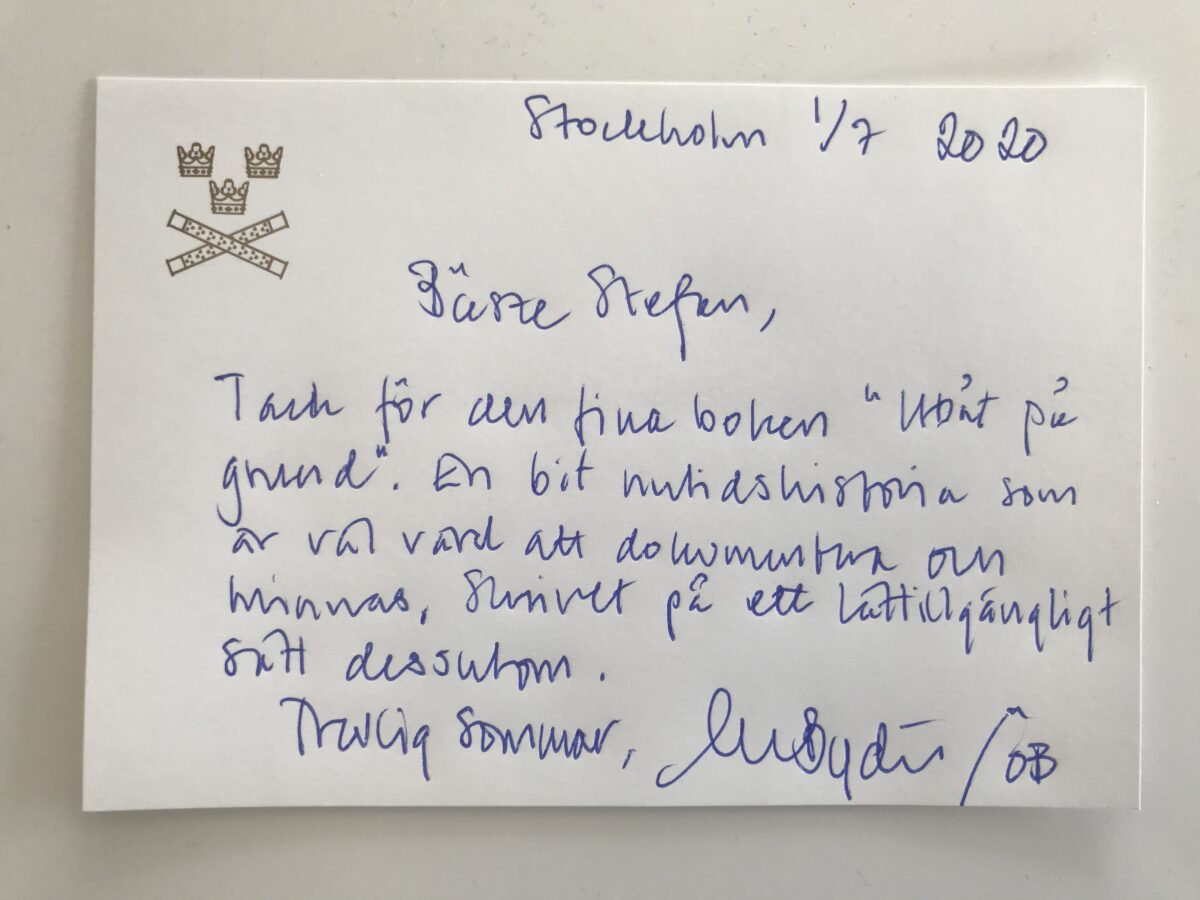 Stockholm 1/7 2020
Bäste Stefan,
Tack för den fina boken "Ubåt på
grund". En bit nutidshistoria som
är väl värd att dokumentera och
minnas, skrivet på ett lättillgängligt
sätt dessutom.
Trevlig sommar, Bydén /ÖB